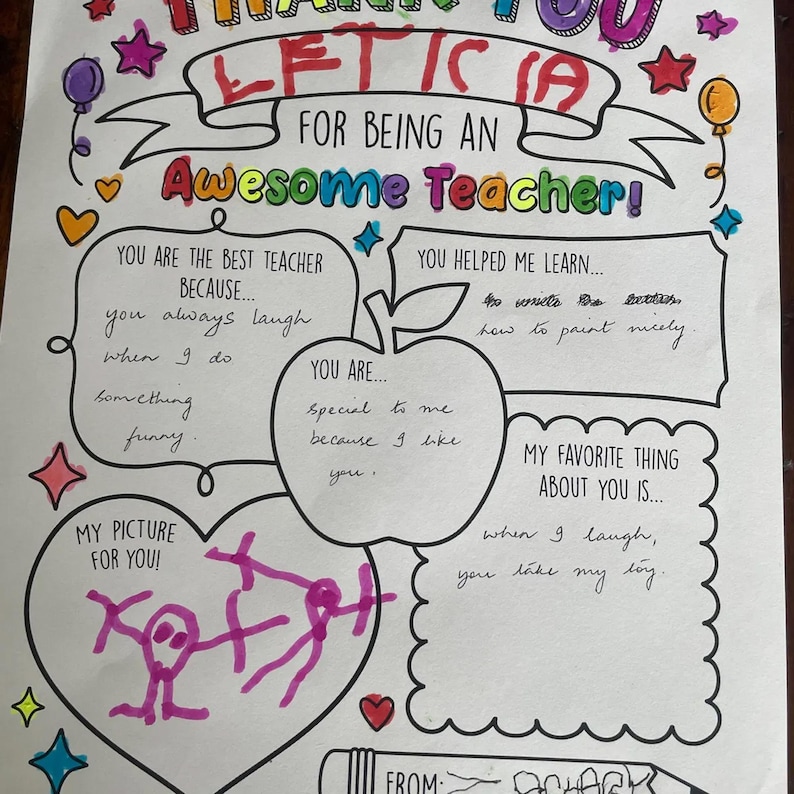 THANK YOU
LETICIA
FOR BEING AN
Awesome Teacher!
YOU ARE THE BEST TEACHER
BECAUSE...
you always laugh
when I do
something
funny.
YOU HELPED ME LEARN...
how to paint nicely.
YOU ARE...
special to me
because I like
you.
MY FAVORITE THING
ABOUT YOU IS...
when I laugh,
you take my toy.
MY PICTURE
FOR YOU!
FROM: